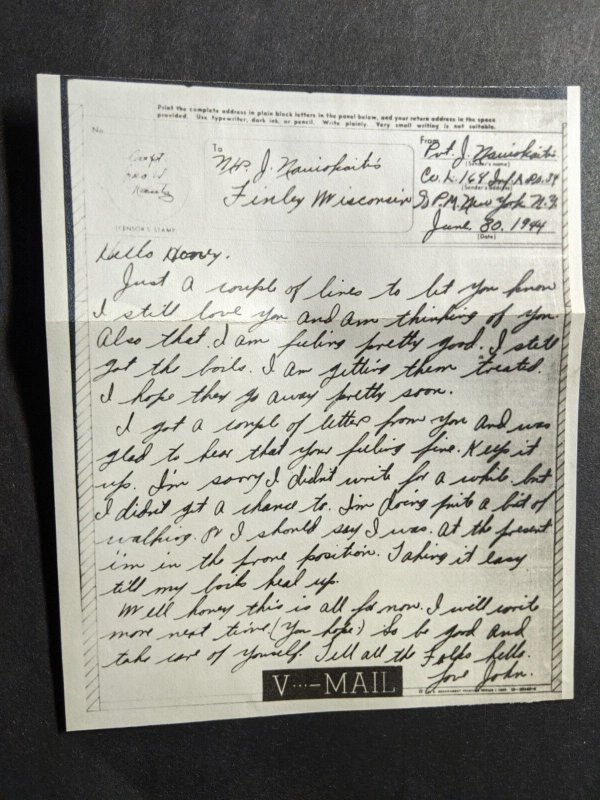 Print the complete address in plain block letters in the panel below, and your return address in the space
provided. Use typewriter, dark ink, or pencil. Write plainly. Very small writing is not suitable.
No.
To
From
Mrs. J.
Finley Wisconsin
Pvt. J.
(Sender's name)
Co. L. 164 Inf. A.P.O.
(Sender's address)
P.M. New York N.Y.
June 30. 1944
(Date)
(CENSOR'S STAMP)
Hello Honey.
Just a couple of lines to let you know
I still love you and am thinking of you.
Also that I am feeling pretty good. I still
got the boils. I am getting them treated.
I hope they go away pretty soon.
I got a couple of letters from you and was
glad to hear that your feeling fine. Keep it
up. I'm sorry I didn't write for a while but
I didn't get a chance to. I'm doing quite a bit of
walking. Or I should say I was. At the present
i'm in the prone position. Taking it easy
till my boils heal up.
Well honey this is all for now. I will write
more next time (You hope:) So be good and
take care of yourself. Tell all the Folks hello.
Love John.
V···-MAIL